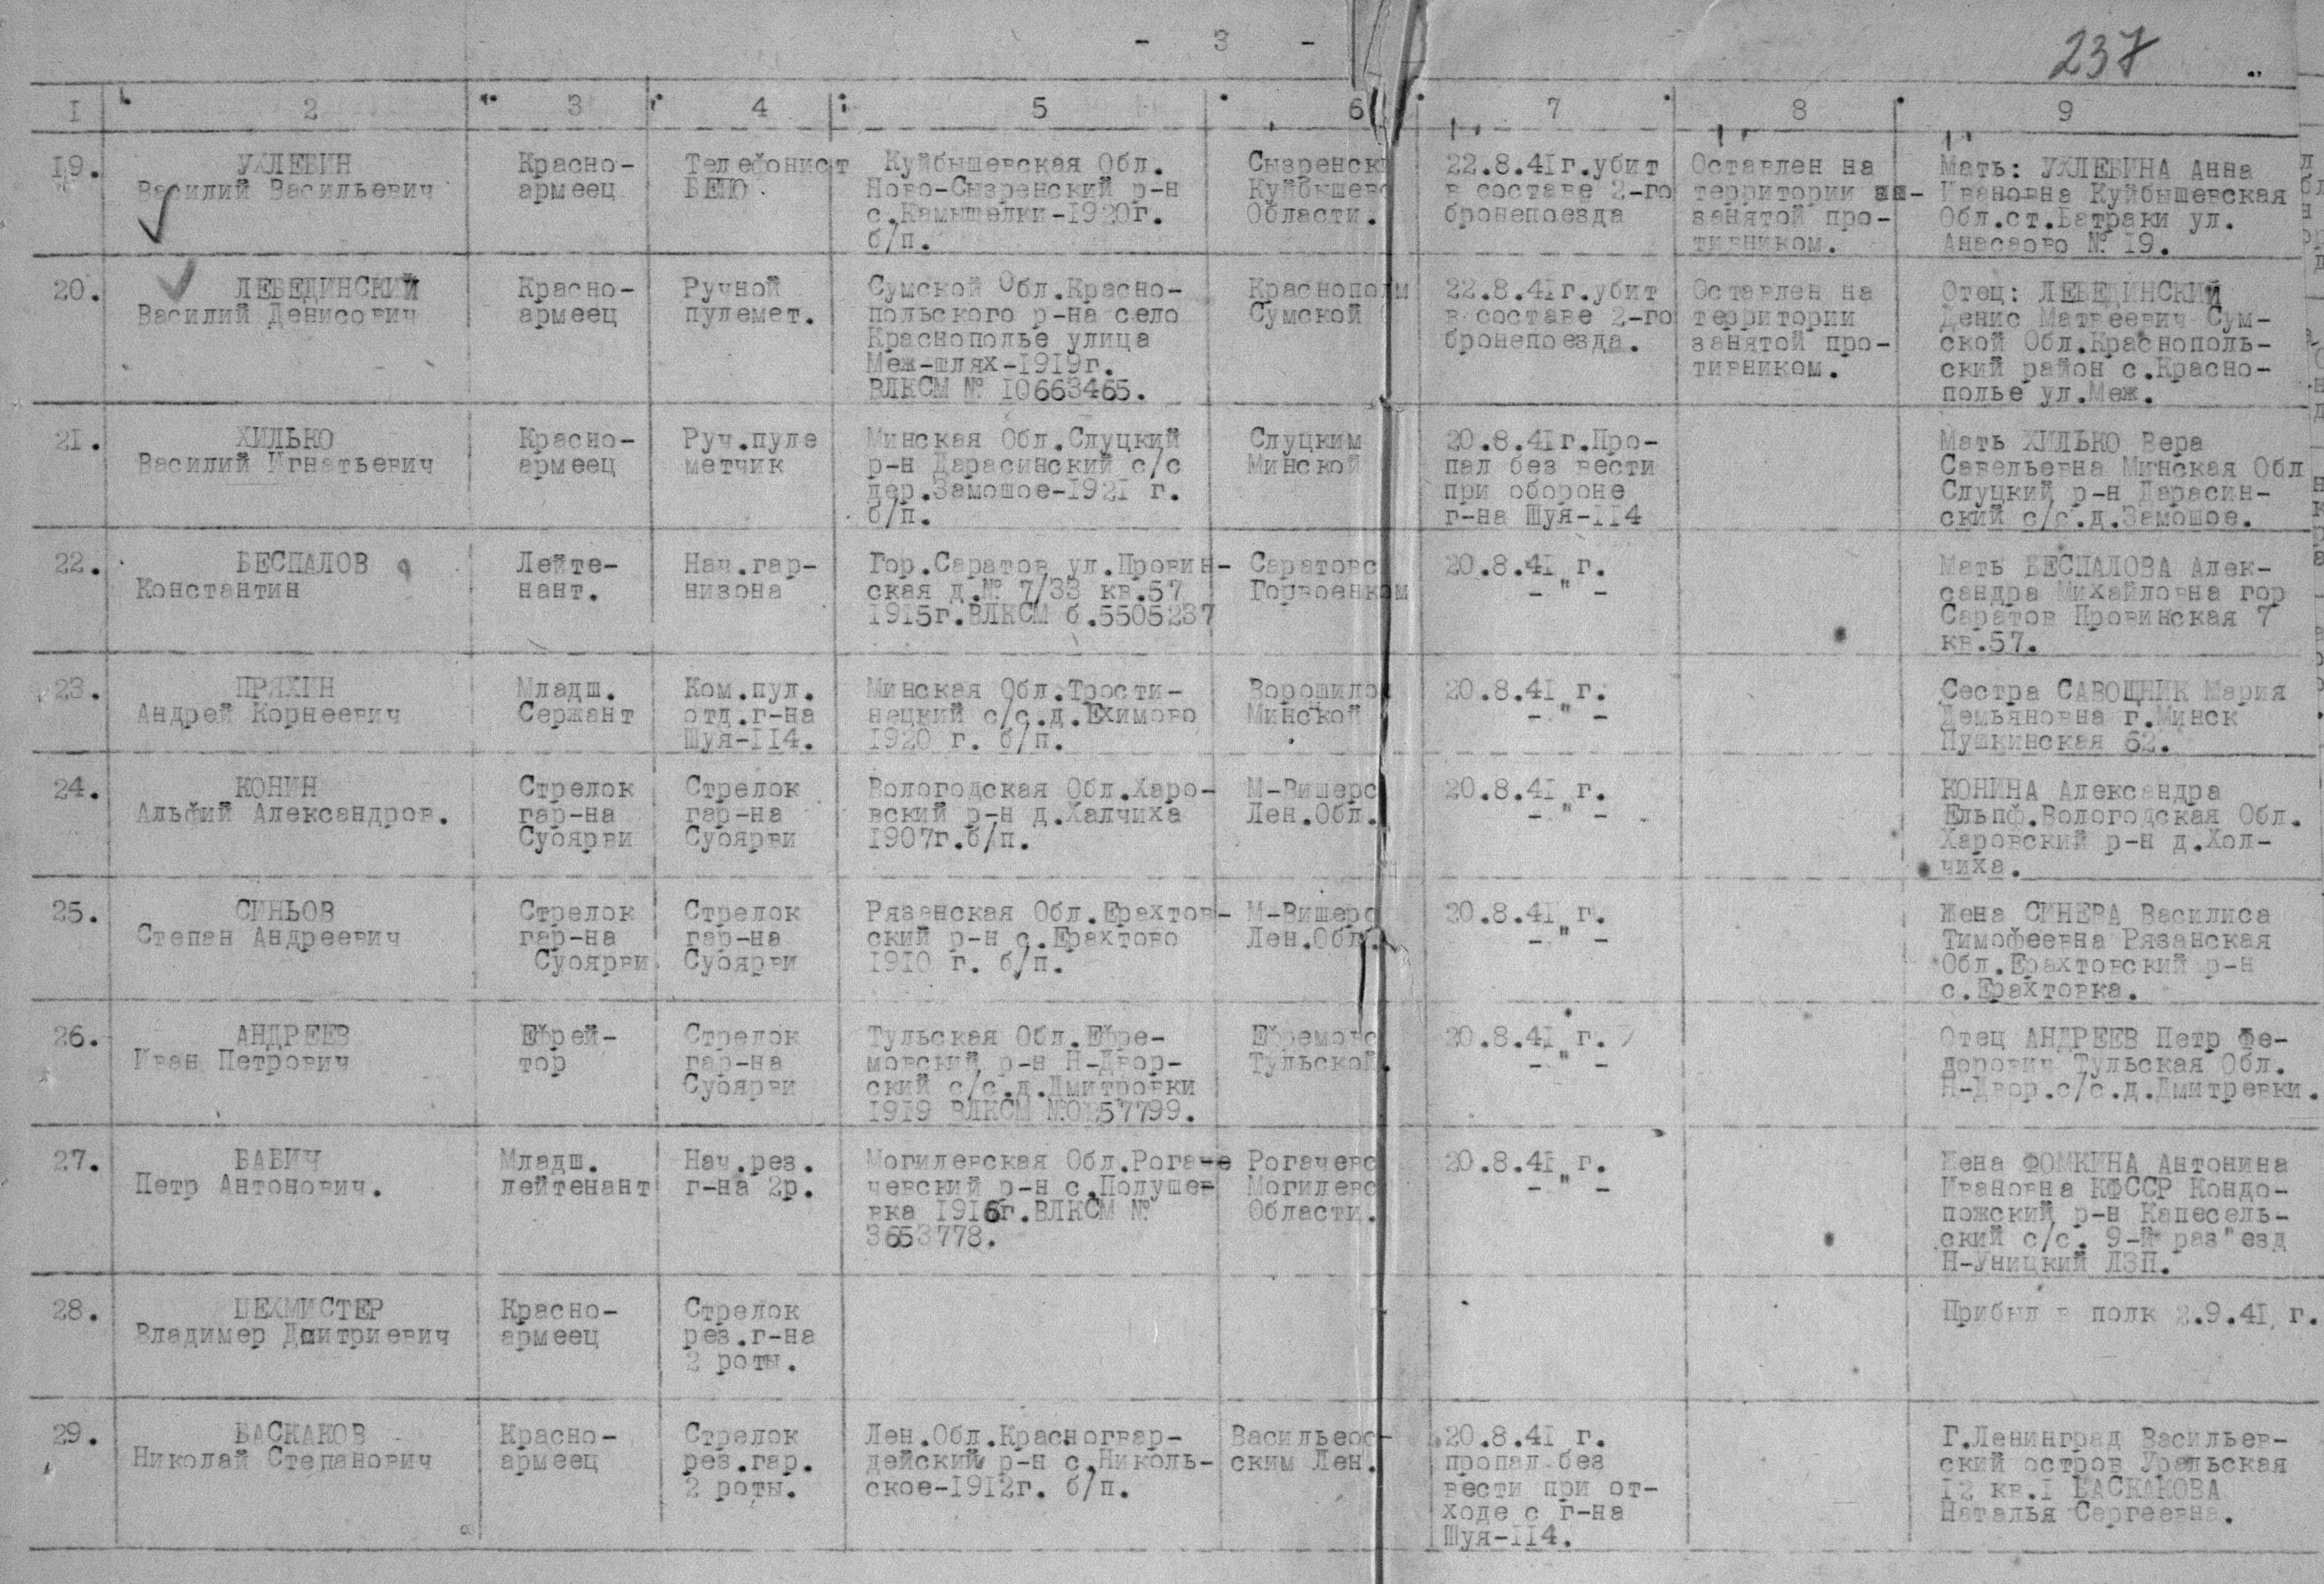 - 3 -
237
I 2 3 4 5 6 7 8 9
19.
УХЛЕБИН
Василий Васильевич
Красно-
армеец
Телефонист
БЕПО
Куйбышевская Обл.
Ново-Сызренский р-н
с.Камышелки-1920г.
б/п.
Сызренск
Куйбышев
Области.
22.8.41г.убит
в составе 2-го
бронепоезда
Оставлен на
территории
занятой про-
тивником.
Мать: УХЛЕБИНА Анна
Ивановна Куйбышевская
Обл.ст.Батраки ул.
№ 19.
20.
ЛЕБЕДИНСКИЙ
Василий Денисович
Красно-
армеец
Ручной
пулемет.
Сумской Обл.Красно-
польского р-на село
Краснополье улица
Меж-шлях-1919г.
ВЛКСМ № 10663465.
Краснополь
Сумской
22.8.41г.убит
в составе 2-го
бронепоезда.
Оставлен на
территории
занятой про-
тивником.
Отец: ЛЕБЕДИНСКИЙ
Денис Матвеевич Сум-
ской Обл.Краснополь-
ский район с.Красно-
полье ул.Меж.
21.
ХИЛЬКО
Василий Игнатьевич
Красно-
армеец
Руч.пуле
метчик
Минская Обл.Слуцкий
р-н Дарасинский с/с
дер.Замошое-1921 г.
б/п.
Слуцким
Минской
20.8.41г.Про-
пал без вести
при обороне
г-на Шуя-114
Мать ХИЛЬКО Вера
Савельевна Минская Обл
Слуцкий р-н Дарасин-
ский с/с.д.Замошое.
22.
БЕСПАЛОВ
Константин
Лейте-
нант.
Нач.гар-
низона
Гор.Саратов ул.Провин-
ская д.№ 7/33 кв.57
1915г.ВЛКСМ б.5505237
Саратовс
Горвоенком
20.8.41 г.
- " -
Мать БЕСПАЛОВА Алек-
сандра Михайловна гор
Саратов Провинская 7
кв.57.
23.
ПРЯХИН
Андрей Корнеевич
Младш.
Сержант
Ком.пул.
отд.г-на
Шуя-114.
Минская Обл.Трости-
нецкий с/с.д.Ехимово
1920 г. б/п.
Ворошилов
Минской
20.8.41 г.
- " -
Сестра САВОЩНИК Мария
Демьяновна г.Минск
Пушкинская 62.
24.
КОНИН
Альфий Александров.
Стрелок
гар-на
Суоярви
Стрелок
гар-на
Суоярви
Вологодская Обл.Харо-
вский р-н д.Халчиха
1907г.б/п.
М-Вишерс
Лен.Обл.
20.8.41 г.
- " -
КОНИНА Александра
Ельпф.Вологодская Обл.
Харовский р-н д.Хол-
чиха.
25.
СИНЬОВ
Степан Андреевич
Стрелок
гар-на
Суоярви
Стрелок
гар-на
Суоярви
Рязанская Обл.Ерахтов-
ский р-н с.Ерахтово
1910 г. б/п.
М-Вишерс
Лен.Обл.
20.8.41 г.
- " -
Жена СИНЕВА Василиса
Тимофеевна Рязанская
Обл.Ерахтовский р-н
с.Ерахтовка.
26.
АНДРЕЕВ
Иван Петрович
Ефрей-
тор
Стрелок
гар-на
Суоярви
Тульская Обл.Ефре-
мовский р-н Н-Двор-
ский с/с.д.Дмитровки
1919 ВЛКСМ
Ефремовс
Тульской.
20.8.41 г.
- " -
Отец АНДРЕЕВ Петр Фе-
дорович Тульская Обл.
Н-Двор.с/с.д.Дмитревки.
27.
БАБИЧ
Петр Антонович.
Младш.
лейтенант
Нач.рез.
г-на 2р.
Могилевская Обл.Рогаче
чевский р-н с.Полушев
вка 1916г.ВЛКСМ №
3653778.
Рогачевс
Могилевс
Области.
20.8.41 г.
- " -
Жена ФОМКИНА Антонина
Ивановна КФССР Кондо-
пожский р-н Капесель-
ский с/с. 9-й раз"езд
Н-Уницкий ЛЗП.
28.
ЦЕХМИСТЕР
Владимер Дмитриевич
Красно-
армеец
Стрелок
рез.г-на
2 роты.
Прибыл в полк 2.9.41 г.
29.
БАСКАКОВ
Николай Степанович
Красно-
армеец
Стрелок
рез.гар.
2 роты.
Лен.Обл.Красногвар-
дейский р-н с.Николь-
ское-1912г. б/п.
Васильеос-
ским Лен.
20.8.41 г.
пропал без
вести при от-
ходе с г-на
Шуя-114.
Г.Ленинград Васильев-
ский остров Уральская
12 кв.1 БАСКАКОВА
Наталья Сергеевна.